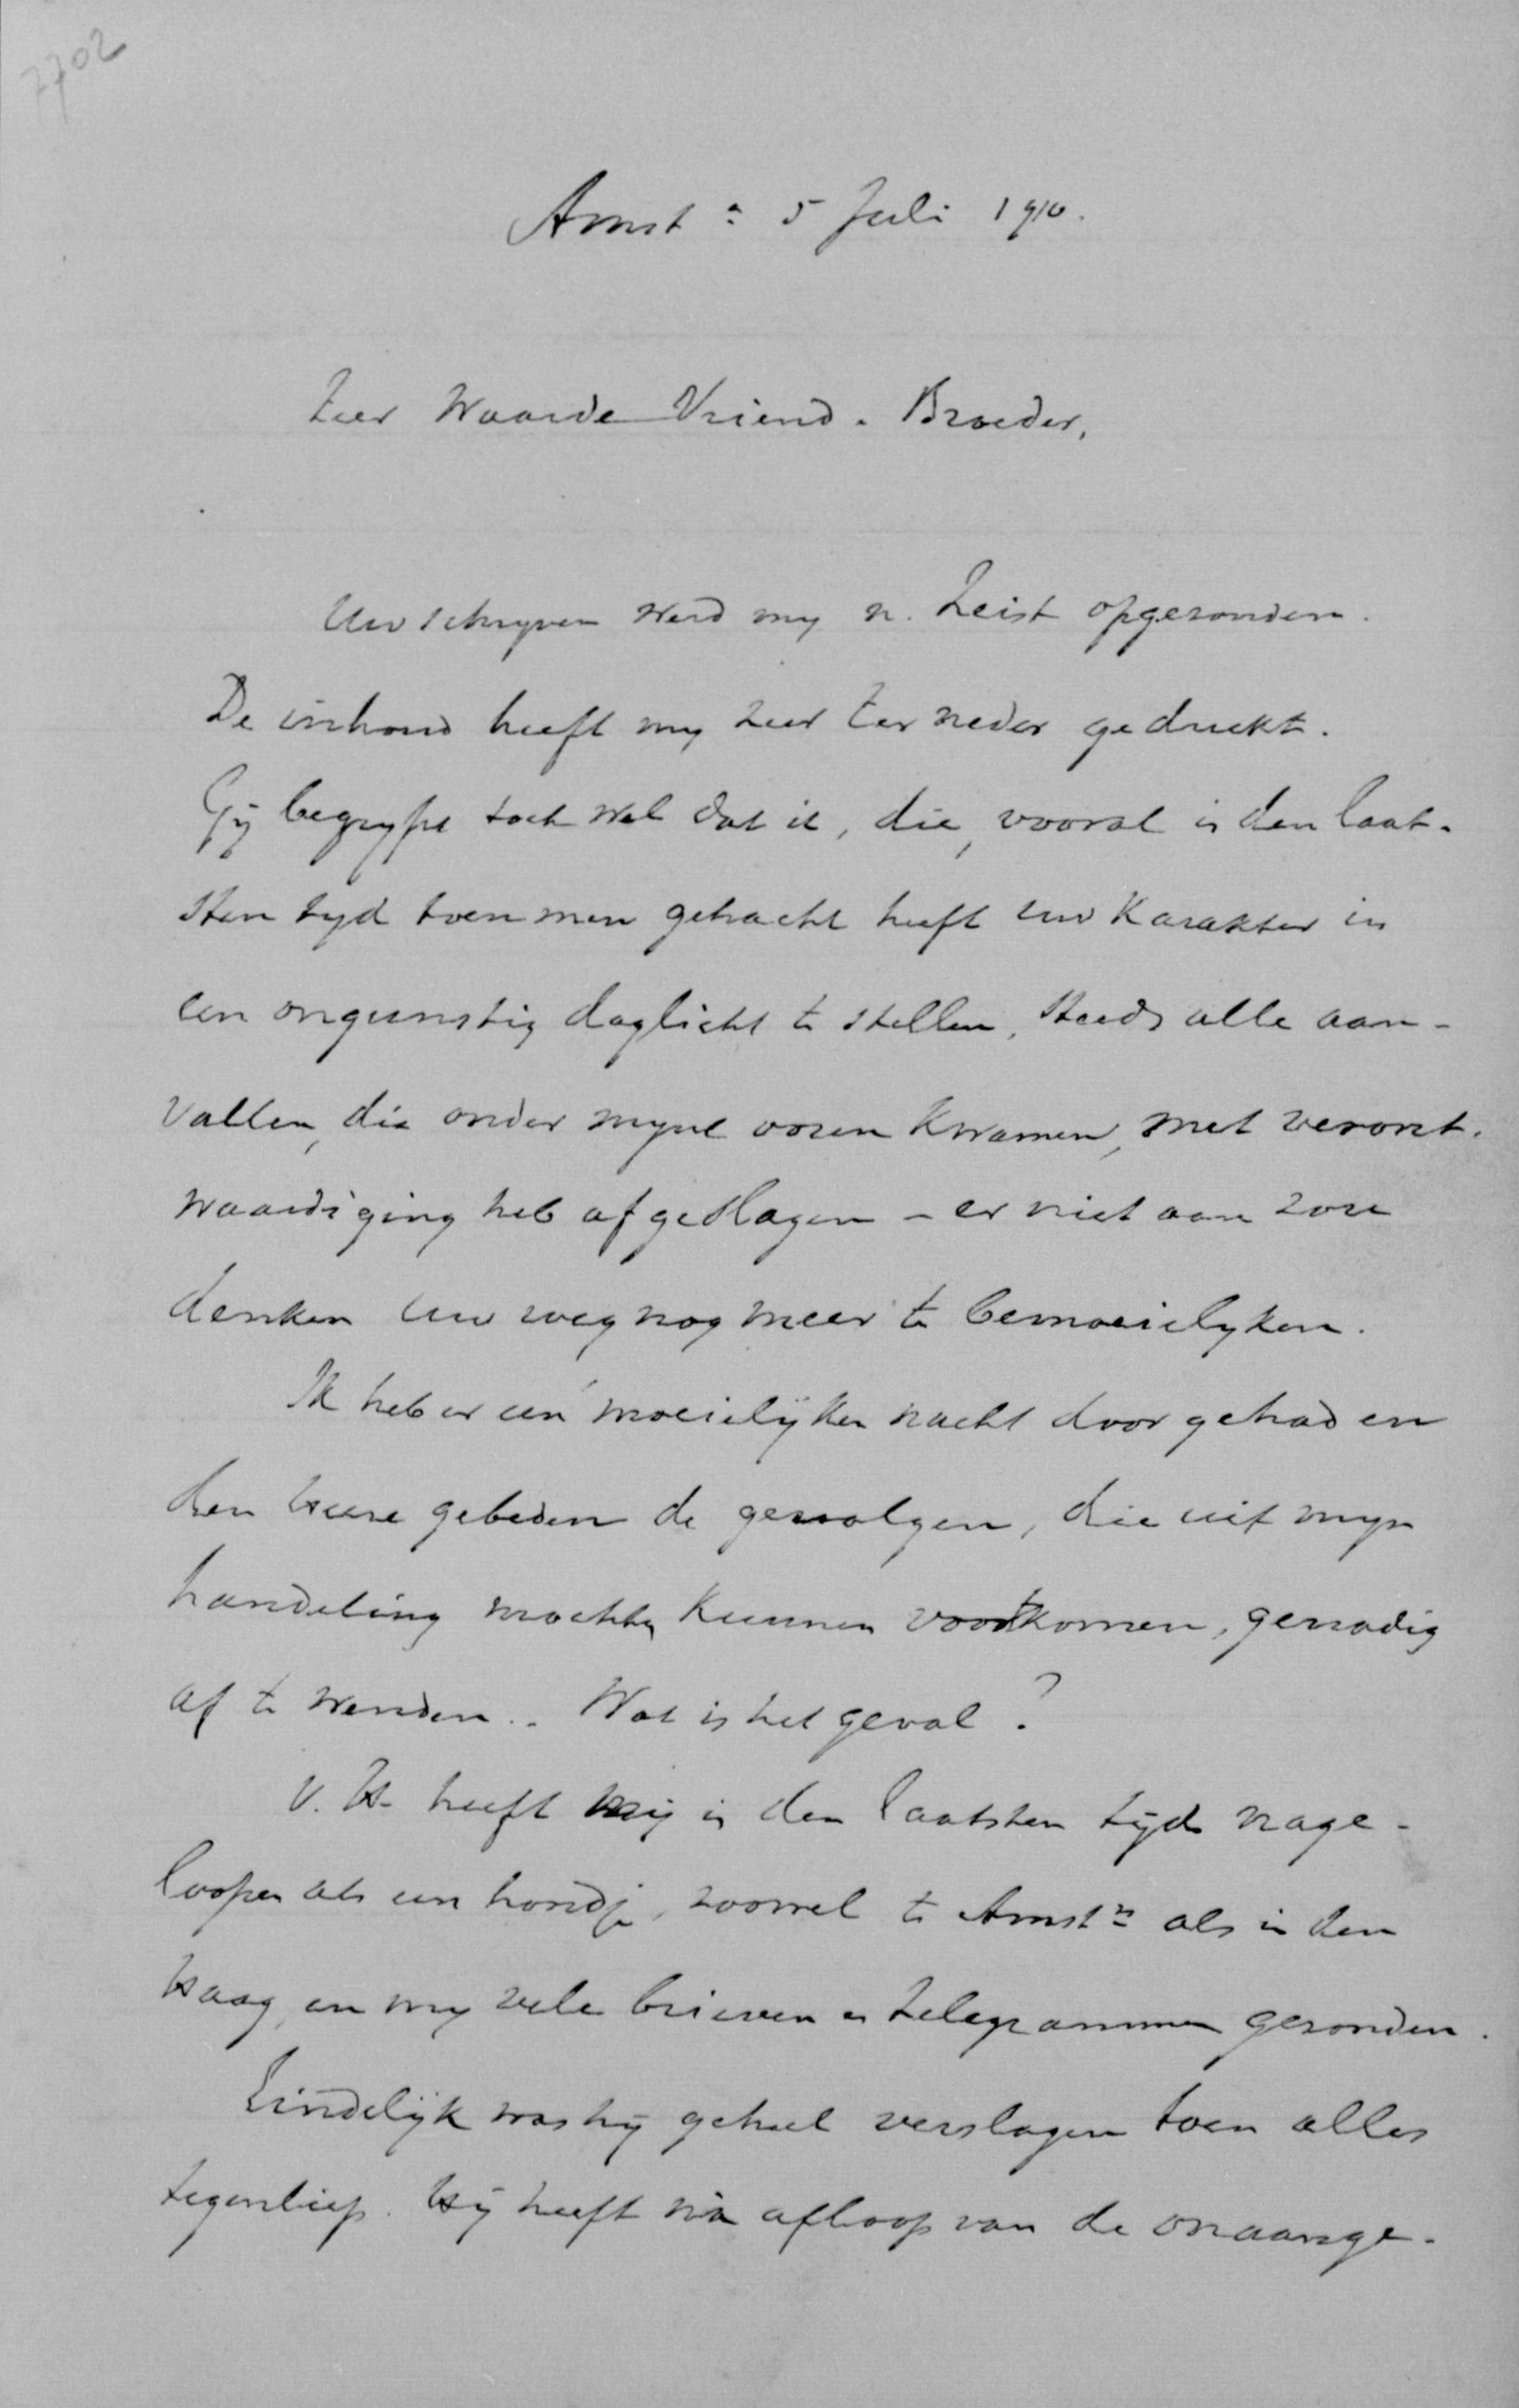 7702
Amstm 5 Juli 1910.
Zeer Waarde Vriend. Broeder,
Uw schrijven werd mij n. Zeist opgezonden.
De inhoud heeft mij zeer ter neder gedrukt.
Gij begrijpt toch wel dat ik, die, vooral in den laat-
sten tijd toen men getracht heeft uw karakter in
een ongunstig daglicht te stellen, steeds alle aan-
vallen, die onder mijne ooren kwamen, met veront-
waardiging heb afgeslagen - er niet aan zou
denken uw weg nog meer te bemoeielyken.
Ik heb er een moeielijken nacht door gehad en
den Heere gebeden de gevolgen, die uit mijn
handeling mochten kunnen voortkomen, genadig
af te wenden. - Wat is het geval?
V. H. heeft mij in den laatsten tijd nage-
loopen als een hondje, zoowel te Amstm als in den
Haag, en mij vele brieven en telegrammen gezonden.
Eindelijk was hij geheel verslagen toen alles
tegenliep. Hij heeft na afloop van de onaange-